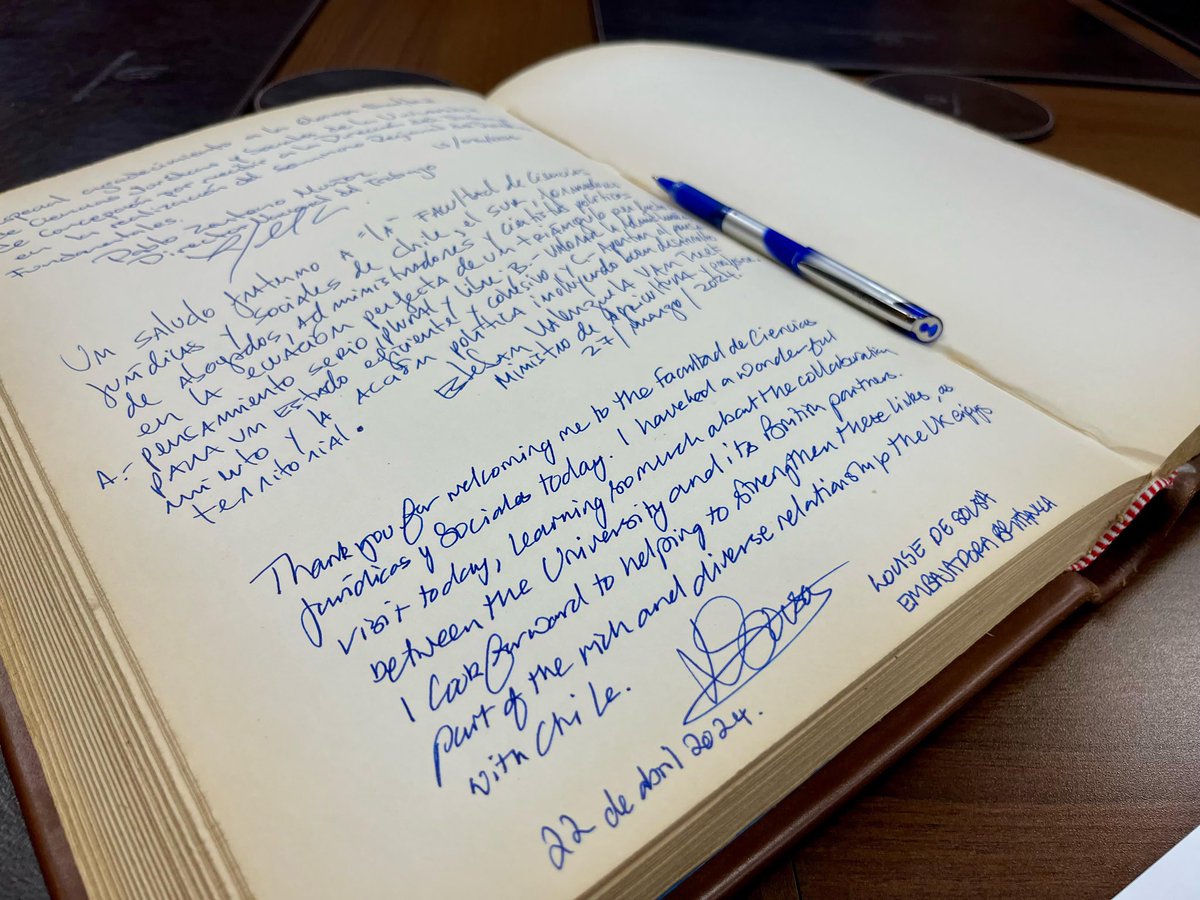 especial agradecimiento a la
de Ciencias Jurídicas y Sociales de la Universidad
de Concepción por medio a la Dirección del
en la realización del seminario Regional
Fundamentales.
Pablo Zenteno Muñoz
Director Nacional del Trabajo
Un saludo fraterno A "lA FACUltAd de Ciencias
Jurídicas y Sociales de Chile, el sur formadora
de Abogados, Administradores y cientistas políticos
en la ecuación perfecta de un triángulo
A.- pensamiento serio, plural y libre B.- Valorar la
PARA un EstAdo eficiente y cohesivo y C.- Aportan al
miento y la Acción política incluyendo buen desarrollo
territorial.
Esteban Valenzuela Van Treek
Ministro de Agricultura
27/marzo/2024.
Thank you for welcoming me to the Facultad de Ciencias
Jurídicas y Sociales today. I have had a wonderful
visit today, learning so much about the collaboration
between the University and its British partners.
I look forward to helping to strengthen these links, as
part of the rich and diverse relationship the UK enjoys
with Chile.
LOUISE DE SOUSA
EMBAJADORA BRITÁNICA
22 de abril 2024.